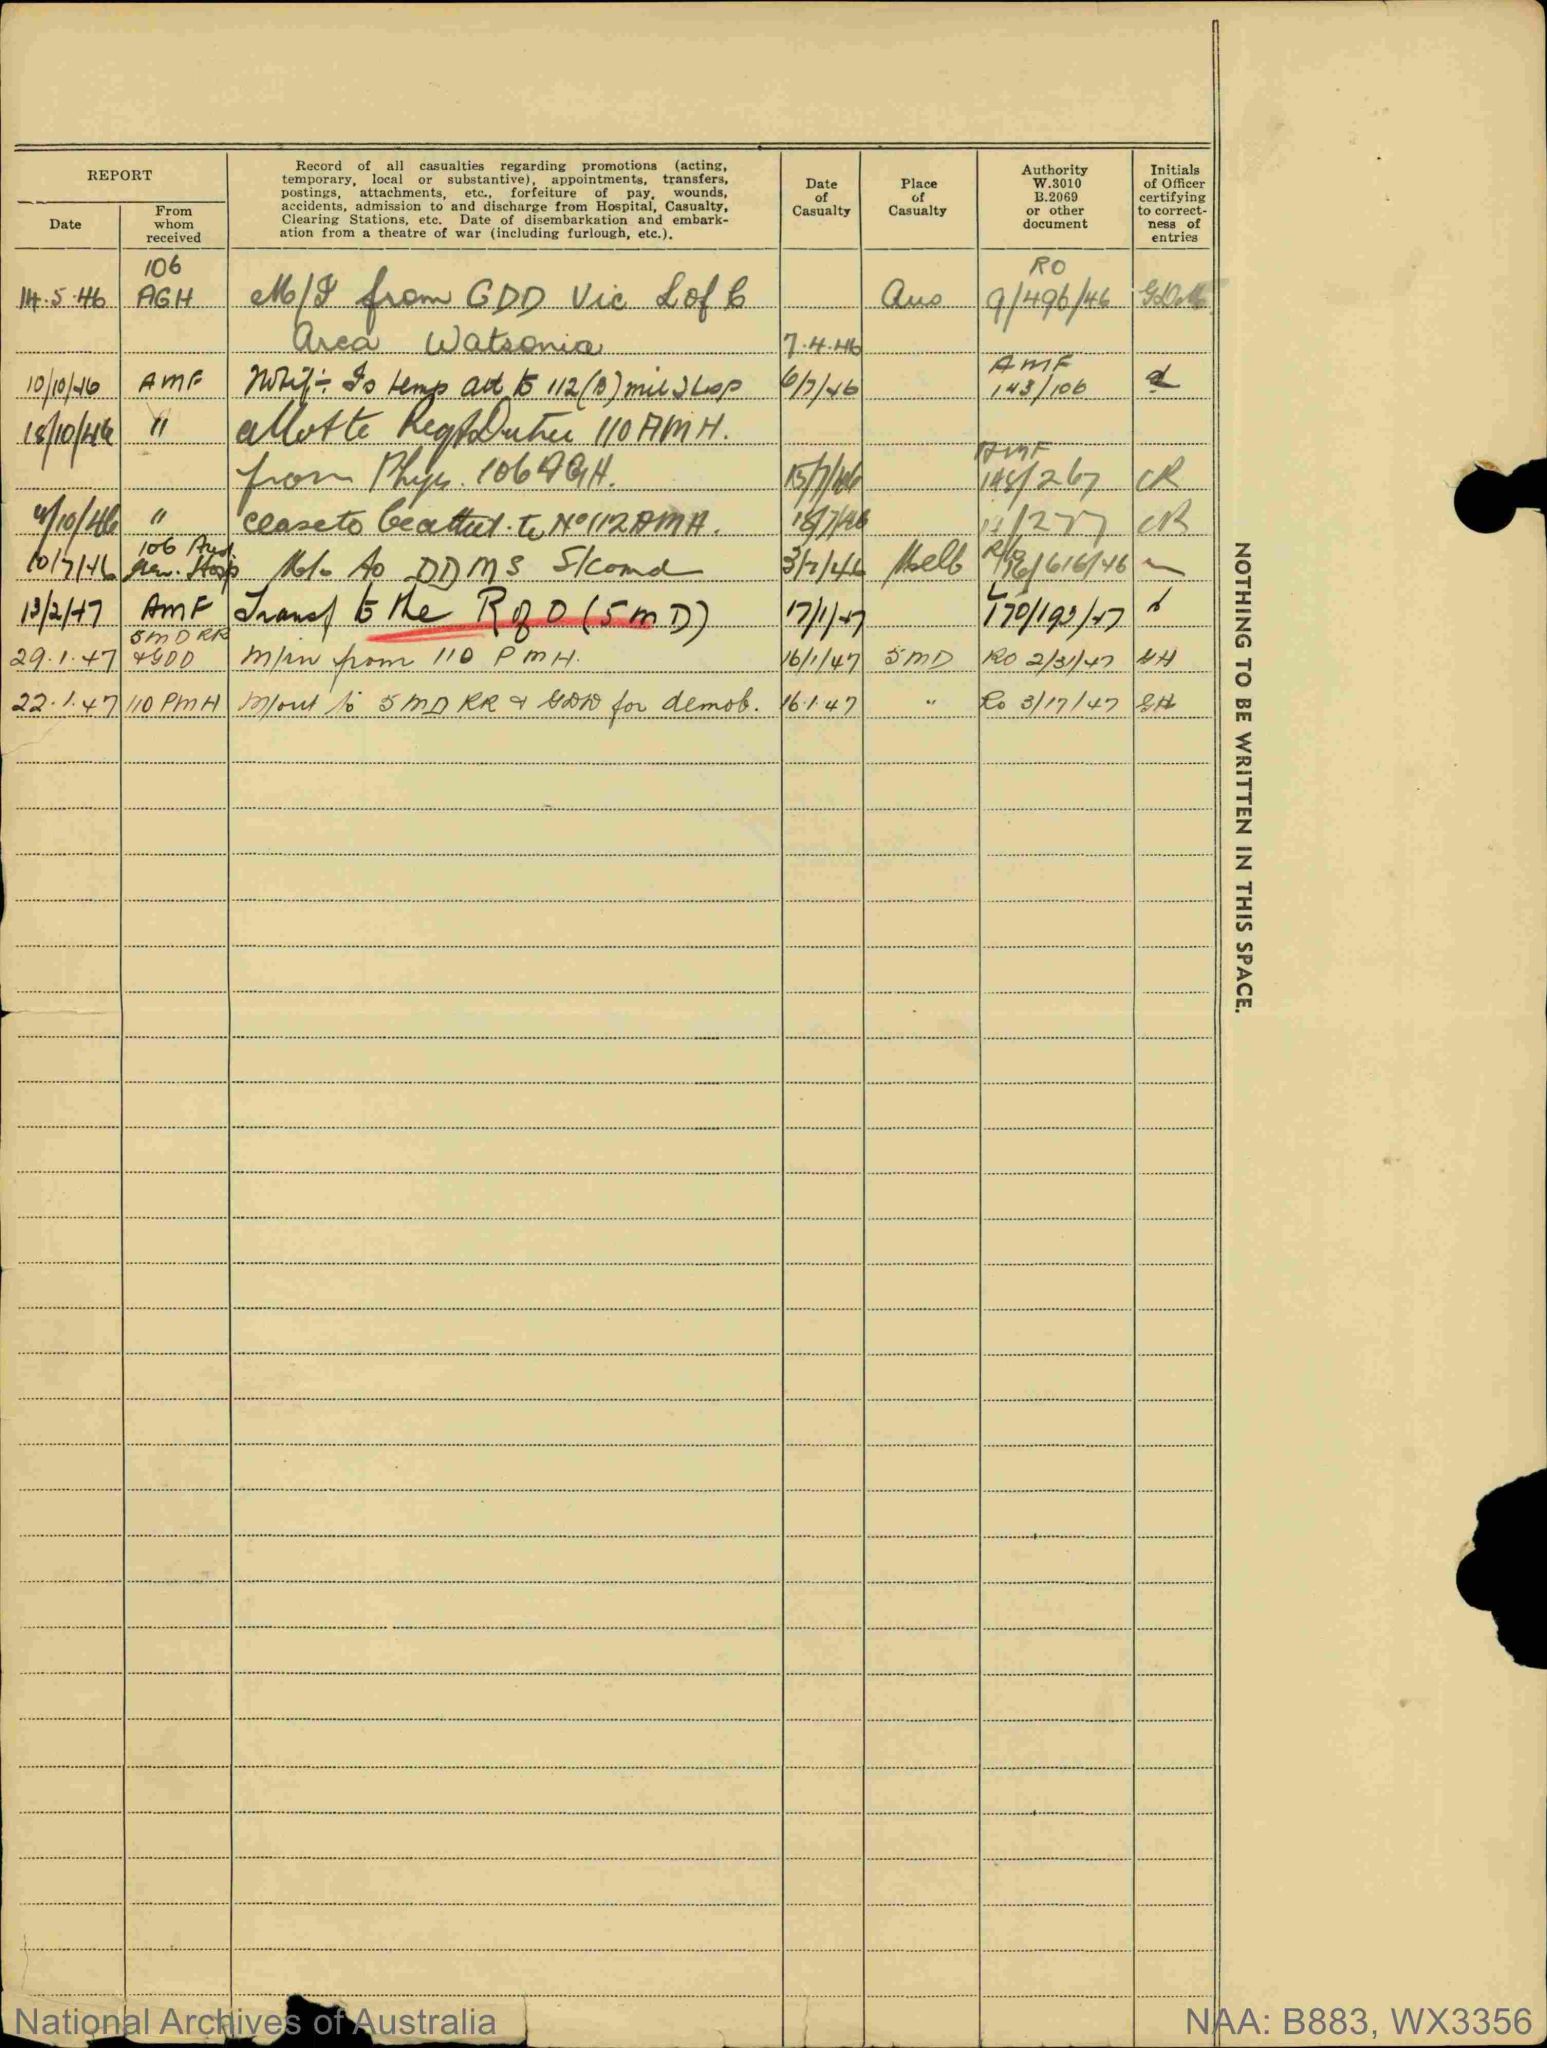 REPORT
Date
From
whom
received
Record of all casualties regarding promotions (acting,
temporary, local or substantive), appointments, transfers,
postings, attachments, etc., forfeiture of pay, wounds,
accidents, admission to and discharge from Hospital, Casualty,
Clearing Stations, etc. Date of disembarkation and embark-
ation from a theatre of war (including furlough, etc.).
Date
of
Casualty
Place
of
Casualty
Authority
W.3010
B.2069
or other
document
Initials
of Officer
certifying
to correct-
ness of
entries
106 RO
14.5.46 AGH M/I from GDD Vic L of C Aus 9/496/46
Area Watsonia 7.4.46
AMF
10/10/46 AMF Notif:- Is temp att to 112 (B) mil Hosp 6/7/46 143/106
18/10/46 " Allot to Duties 110 AMH.
AMF
from Phys. 106 AGH. 15/7/46 148/267 CR
/10/46 " cease to be att to No 112 AMH. /7/46 /277 CR
106 Aust
10/7/46 Gen. Hosp to DDMS S/Comd 3/7/46 Melb /616/46
13/2/47 AMF Transf to the R of O (5 MD) 17/1/47 170/193/47
5MD RR
29.1.47 & GDD M/in from 110 PMH. 16/1/47 5MD RO 2/31/47 GH
22.1.47 110 PMH M/out to 5MD RR & GDD for demob. 16.1.47 " Ro 3/17/47 GH
NOTHING TO BE WRITTEN IN THIS SPACE.
National Archives of Australia
NAA: B883, WX3356